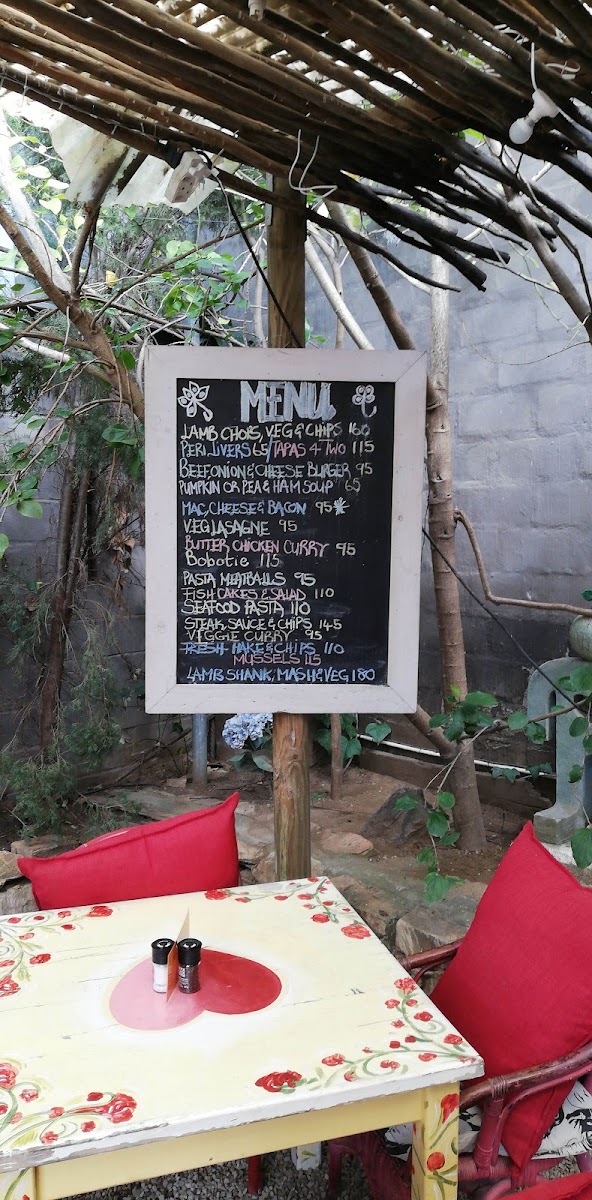 MENU
LAMB CHOPS, VEG & CHIPS 160
PERI LIVERS 65/TAPAS 4 TWO 115
BEEF ONION & CHEESE BURGER 95
PUMPKIN OR PEA & HAM SOUP 65
MAC, CHEESE & BACON 95
VEG LASAGNE 95
BUTTER CHICKEN CURRY 95
Bobotie 115
PASTA MEATBALLS 95
FISH CAKES & SALAD 110
SEAFOOD PASTA 110
STEAK, SAUCE & CHIPS 145
VEGGIE CURRY 95
FRESH HAKE & CHIPS 110
MUSSELS 115
LAMB SHANK, MASH & VEG 180